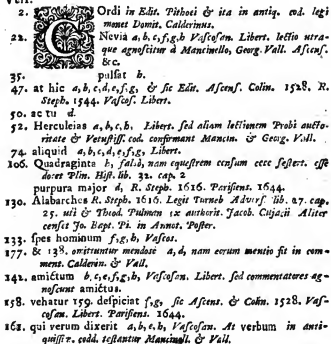 2. Ordi in Edit. Pithoei & ita in antiq. cod. legi
monet Domit. Calderinus.
22. CNevia a, b, c, f, g, h Vafcofan. Libert. lectio utra-
que agnofcitur à Mancinello, Georg. Vall. Afcenf.
&c.
35. pulfat b.
47. at hic a, b, c, d, e, f, g, & fic Edit. Afcenf. Colin. 1528. R.
Steph. 1544. Vafcof. Libert.
50. ac tu d.
52. Herculeias a, b, c, h, Libert. fed aliam lectionem Probi aucto-
ritate & Vetuftiff. cod. confirmant Mancin. & Georg. Vall.
74. aliquid a, b, c, d, e, f, g, Libert.
106. Quadraginta b, nam equeftrem cenfum ecce feftert. effe
docet Plin. Hift. lib. 32. cap. 2
purpura major d, R. Steph. 1616. Parifienf. 1644.
130. Alabarches R. Steph. 1616. Legit Turneb Adverf lib. 27. cap.
25. ufi & Theod. Pulman ex authorit. Jacob. Cujacii Aliter
cenfet Jo. Bapt. Pi. in Annot. Pofter.
133. fpes hominum f, g, h, Vafcos.
177. & 138. omittuntur mendosè a, d, nam eorum mentio fit in com-
ment. Calderin. & Vall.
142. amictum b, c, e, f, g, h, Vafcofan. Libert. fed commentatores ag-
nofcunt amictus.
158. vehatur 159. defpiciat f, g, fic Afcens. & Colin. 1528. Vaf-
cofan. Libert. Parifienf. 1644.
162. qui verum dixerit a, b, e, h, Vafcofan. At verbum in anti-
quiff. codd. teftantur Mancinell. & Vall.